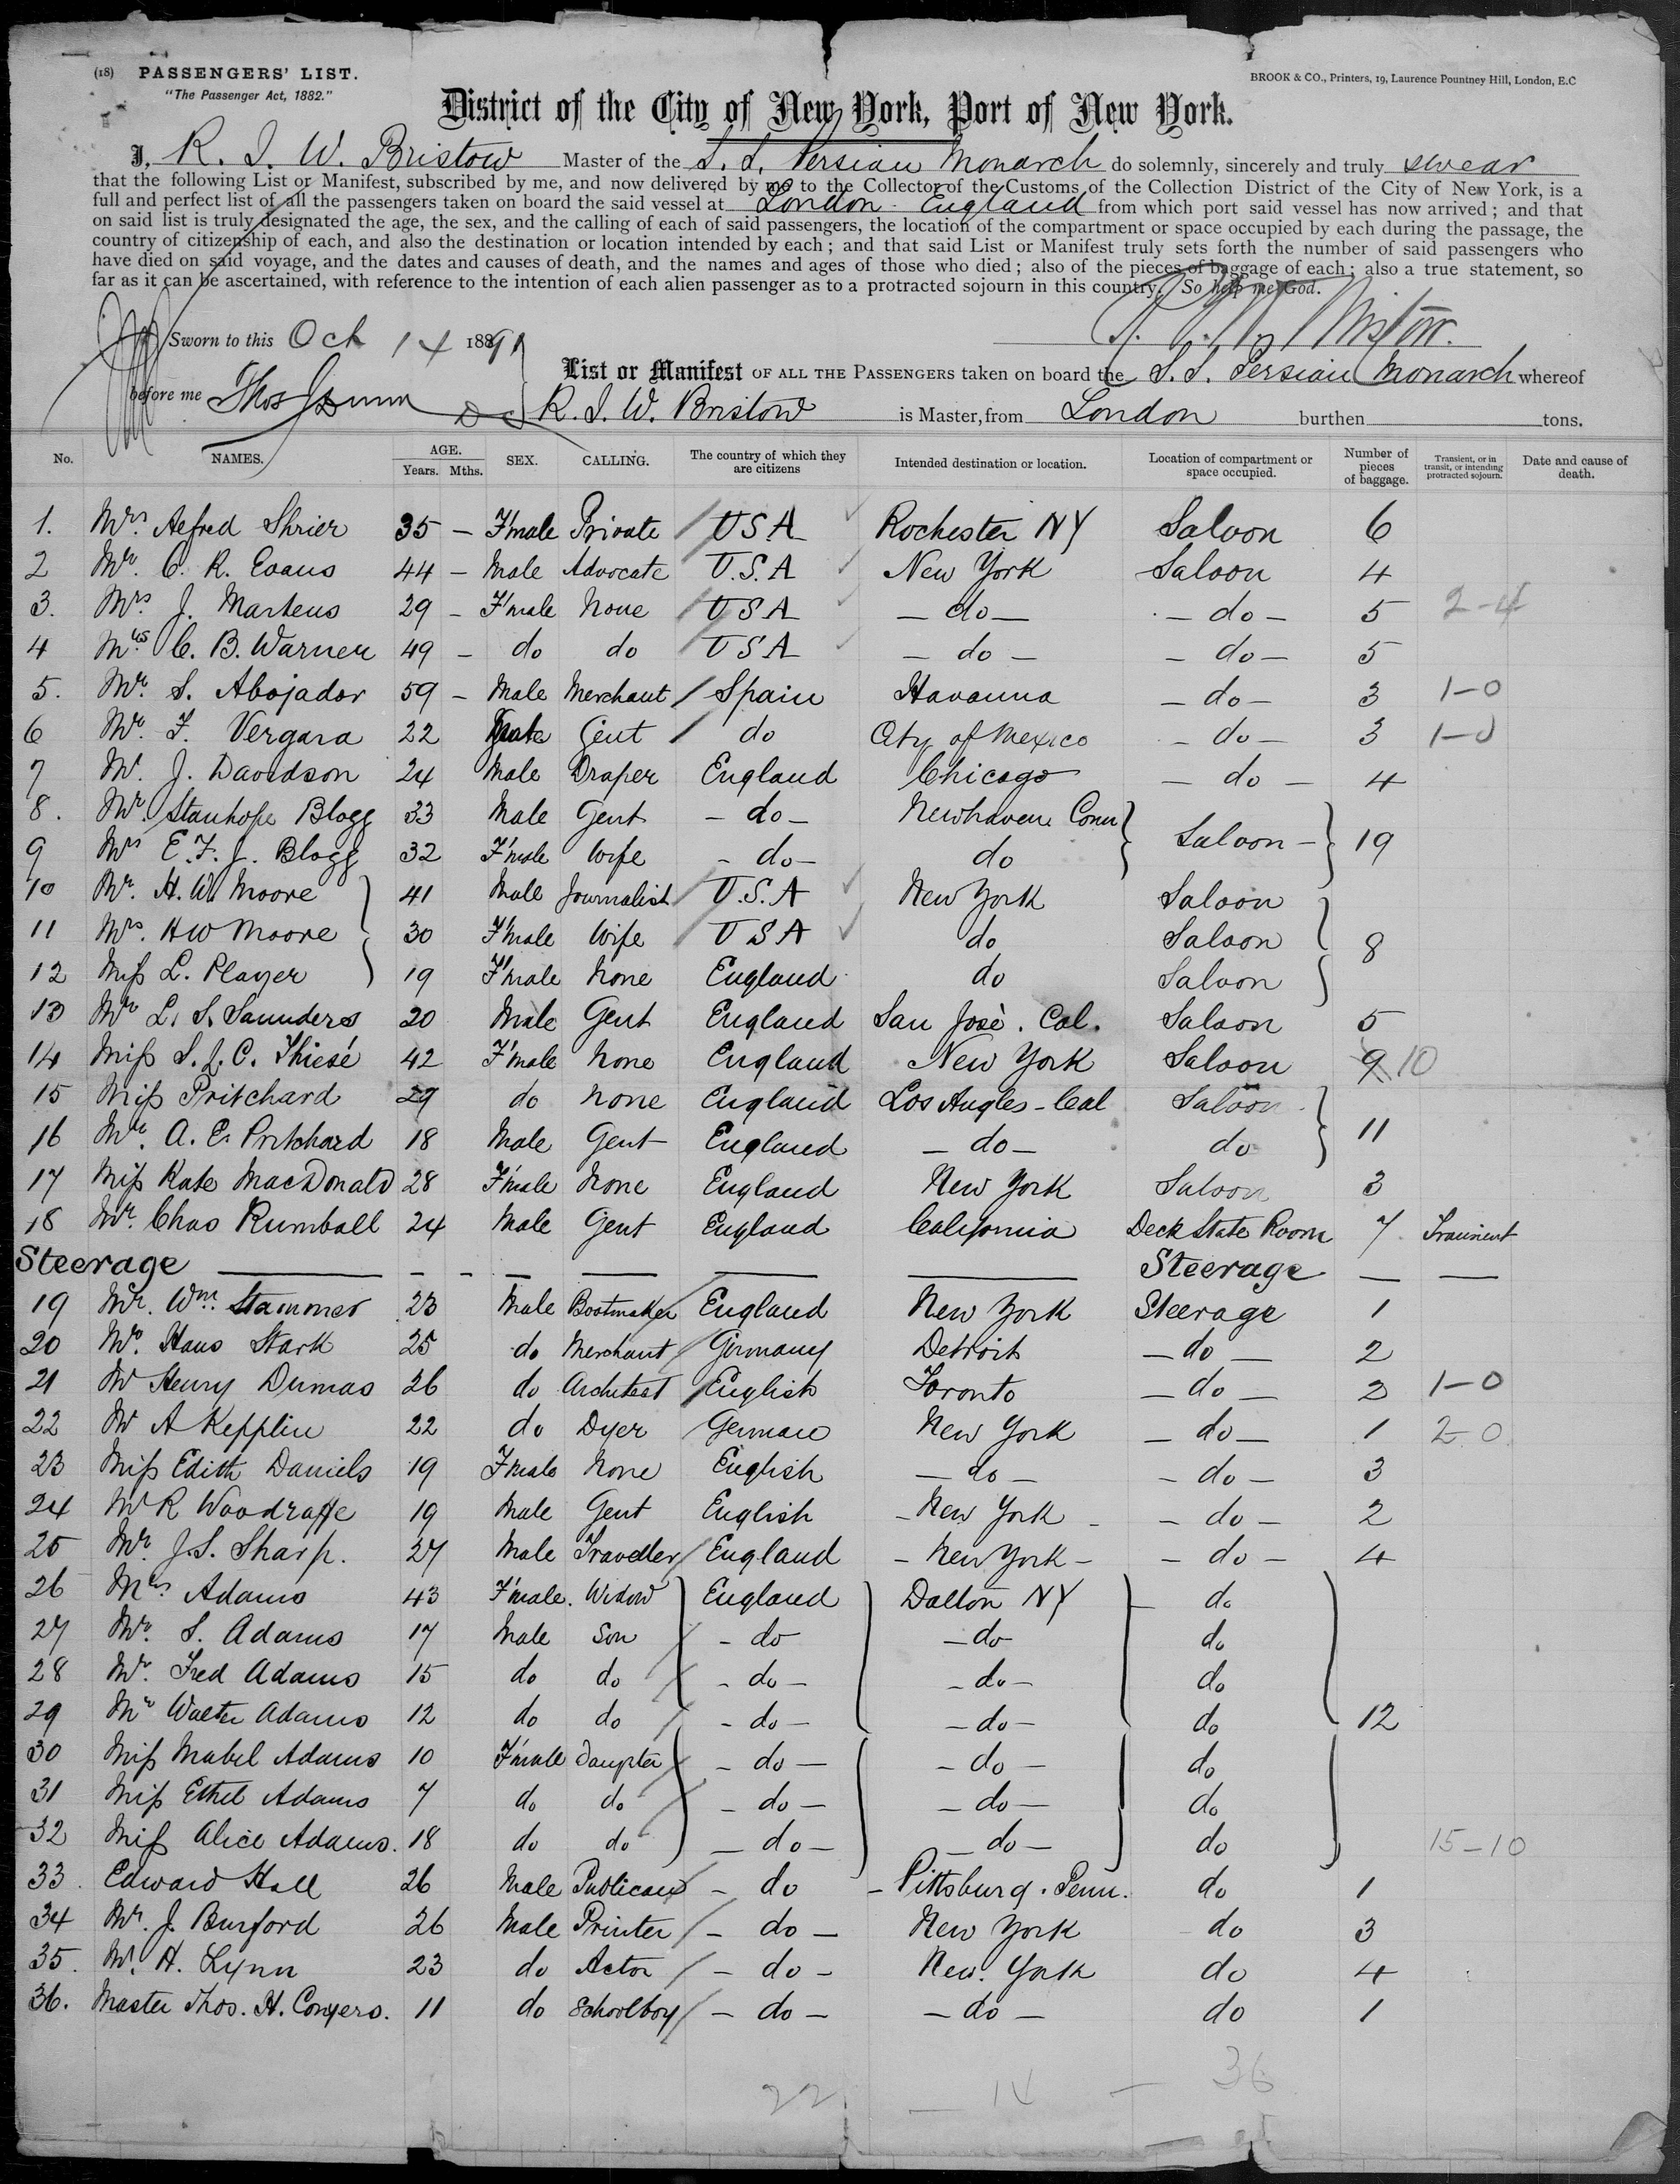 (18) PASSENGERS' LIST.
"The Passenger Act, 1882."
BROOK & CO., Printers, 19, Laurence Pountney Hill, London, E.C
District of the City of New York, Port of New York.
I, R. J. W. Bristow Master of the S. S. Persian Monarch do solemnly, sincerely and truly swear
that the following List or Manifest, subscribed by me, and now delivered by me to the Collector of the Customs of the Collection District of the City of New York, is a
full and perfect list of all the passengers taken on board the said vessel at London England from which port said vessel has now arrived; and that
on said list is truly designated the age, the sex, and the calling of each of said passengers, the location of the compartment or space occupied by each during the passage, the
country of citizenship of each, and also the destination or location intended by each; and that said List or Manifest truly sets forth the number of said passengers who
have died on said voyage, and the dates and causes of death, and the names and ages of those who died; also of the pieces of baggage of each; also a true statement, so
far as it can be ascertained, with reference to the intention of each alien passenger as to a protracted sojourn in this country. So help me God.
Bristow.
Sworn to this Oct 14 1891
before me Thos Dunn
List or Manifest OF ALL THE PASSENGERS taken on board the S. S. Persian Monarch whereof
R. J. W. Bristow is Master, from London burthen tons.
No. NAMES. AGE. Years. Mths. SEX. CALLING. The country of which they are citizens Intended destination or location. Location of compartment or space occupied. Number of pieces of baggage. Transient, or in transit, or intending protracted sojourn. Date and cause of death.
1. Mrs Aefred Shrier 35 – F'male Private / USA Rochester NY Saloon 6
2 Mr. C. R. Evans 44 – Male Advocate U.S.A New York Saloon 4
3. Mrs. J. Martens 29 – F'male None / USA – do – – do – 5 2–4
4 Mrs C. B. Warner 49 – do do USA – do – – do – 5
5. Mr. S. Abojador 59 – Male Merchant / Spain Havanna – do – 3 1–0
6 Mr. F. Vergara 22 Male Gent / do City of Mexico – do – 3 1–0
7 Mr. J. Davidson 24 Male Draper England Chicago – do – 4
8. Mr Stanhope Blogg 33 Male Gent – do – Newhaven Conn } Saloon – } 19
9 Mrs E. F. J. Blogg 32 F'male Wife – do – do
10 Mr. H. W. Moore 41 Male Journalist / U.S.A New York Saloon
11 Mrs. HW Moore 30 F'male Wife / USA do Saloon 8
12 Miss L. Player 19 F'male None England do Saloon
13 Mr L. S. Saunders 20 Male Gent England San José. Cal. Saloon 5
14 Miss S. J. C. Thiesé 42 F'male None England New York Saloon 9 10
15 Miss Pritchard 29 do None England Los Angles – Cal Saloon
16 Mr. A. E. Pritchard 18 Male Gent England – do – do 11
17 Miss Kate MacDonald 28 F'male None England New York Saloon 3
18 Mr. Chas Rumball 24 Male Gent England California Deck State Room 7 Transient
Steerage – – – – – – – Steerage – –
19 Mr. Wm. Stammer 23 Male Bootmaker England New York Steerage 1
20 Mr. Hans Stark 25 do Merchant / Germany Detroit – do – 2
21 Mr Henry Dumas 26 do Architect / English Toronto – do – 2 1–0
22 Mr A Kepplin 22 do Dyer German New York – do – 1 2–0
23 Miss Edith Daniels 19 F'male None English – do – – do – 3
24 Mr R Woodraffe 19 Male Gent English – New York – – do – 2
25 Mr. J. S. Sharp. 27 Male Traveller / England – New York – – do – 4
26 Mrs Adams 43 F'male. Widow England Dalton NY do
27 Mr. S. Adams 17 Male Son / – do – do – do
28 Mr. Fred Adams 15 do do / – do – – do – do
29 Mr Walter Adams 12 do do / – do – – do – do 12
30 Miss Mabel Adams 10 F'male Daughter / – do – – do – do
31 Miss Ethel Adams 7 do do / – do – – do – do
32 Miss Alice Adams. 18 do do – do – – do – do 15–10
33. Edward Hall 26 Male Publican / – do – Pittsburg. Penn. do 1
34 Mr. J. Burford 26 Male Printer / – do – New York do 3
35. Mr. H. Lynn 23 do Actor / – do – New. York do 4
36. Master Thos. H. Conyers. 11 do Schoolboy / – do – – do – do 1
22 – 14 – 36